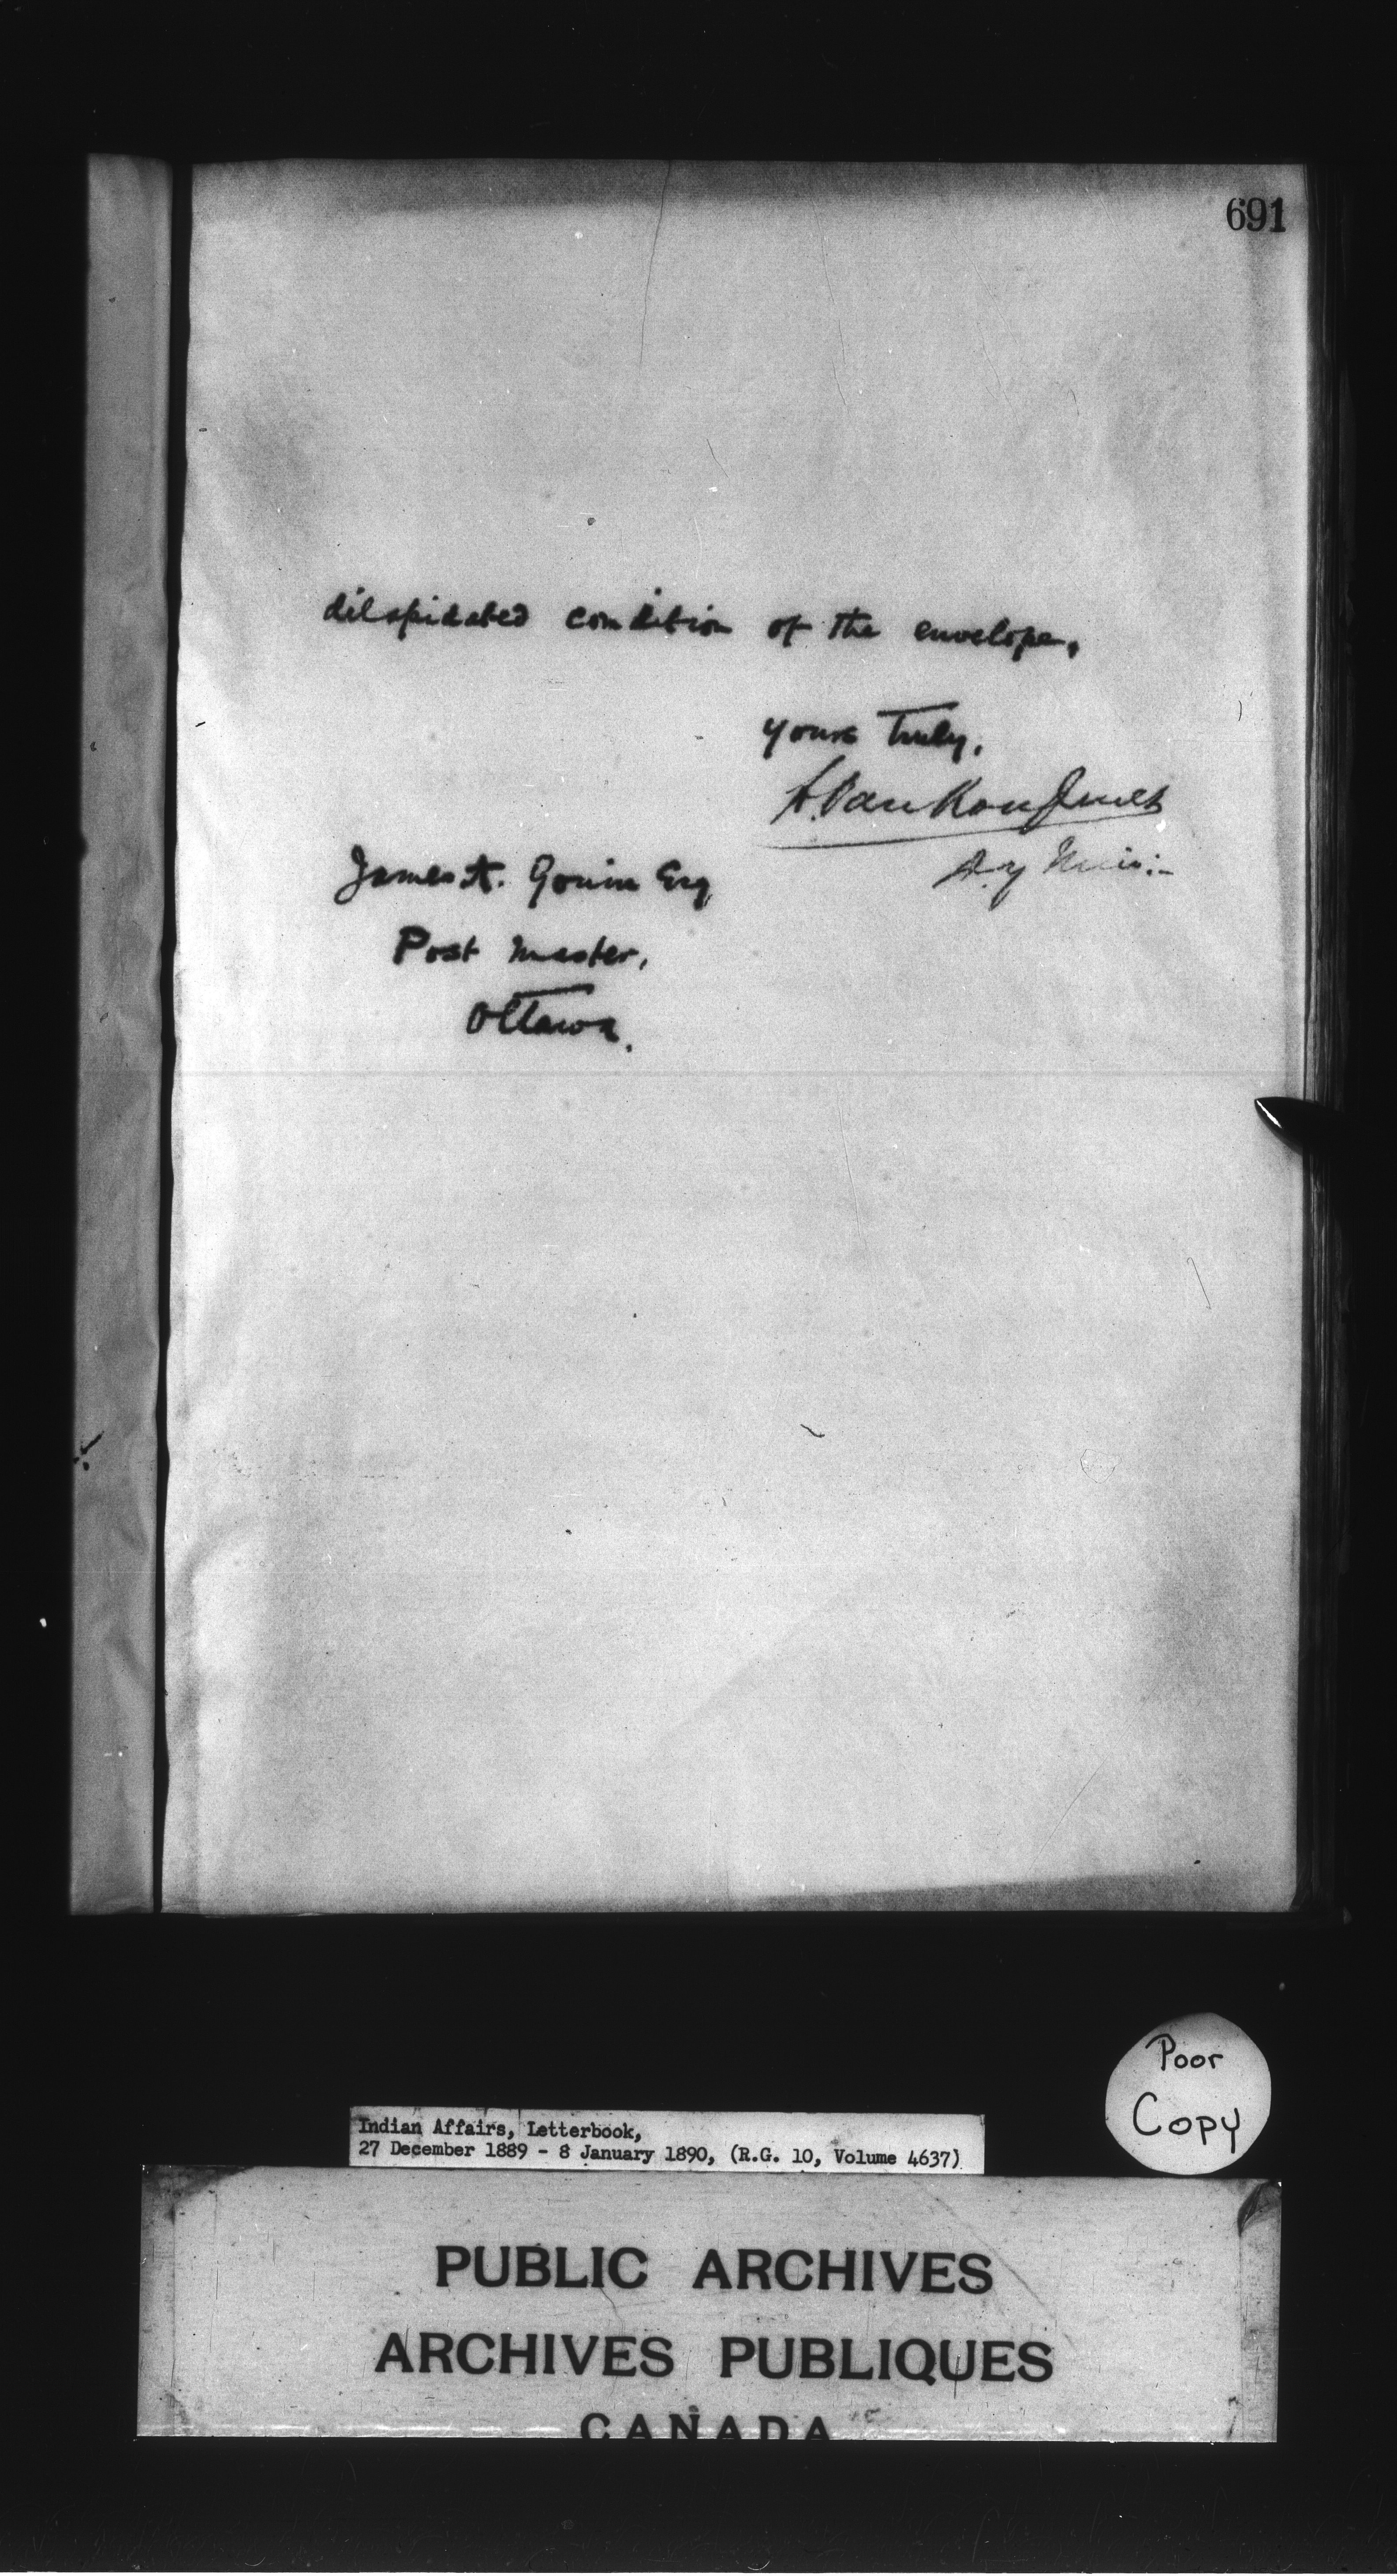 691
dilapidated condition of the envelope.
Yours truly,
L. Vankoughnet
Dy Min:-
James A. Gouin Esq
Post Master,
Ottawa.
Poor
Copy
Indian Affairs, Letterbook,
27 December 1889 - 8 January 1890, (R.G. 10, Volume 4637)
PUBLIC ARCHIVES
ARCHIVES PUBLIQUES
CANADA